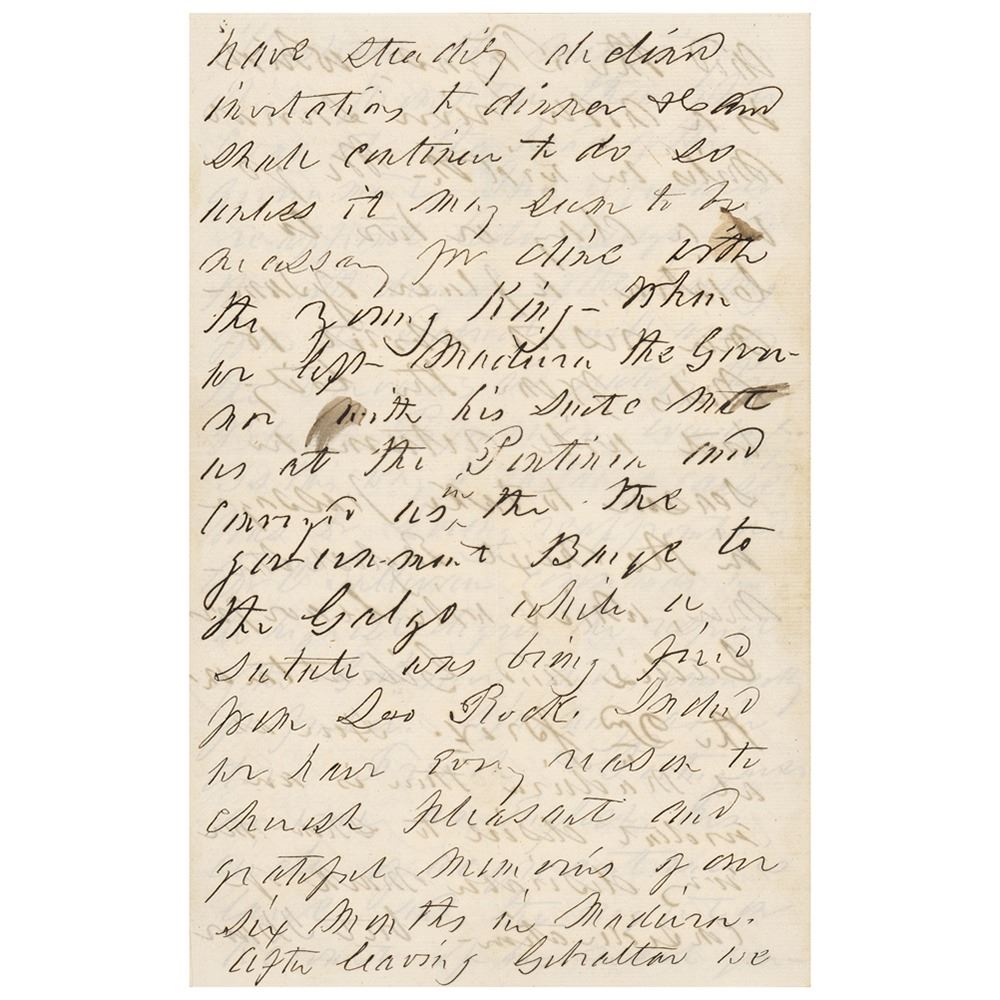 have steadily declined
invitations to dinner &c and
shall continue to do so
unless it may seem to be
necessary for dine with
the young King – When
we left Madeira the Gover-
nor with his suite met
us at the Pontinia and
conveyed us in the the
government Barge to
the Galgo while a
salute was being fired
from Loo Rock. Indeed
we have every reason to
cherish pleasant and
grateful memories of our
six months in Madeira.
After leaving Gibraltar we